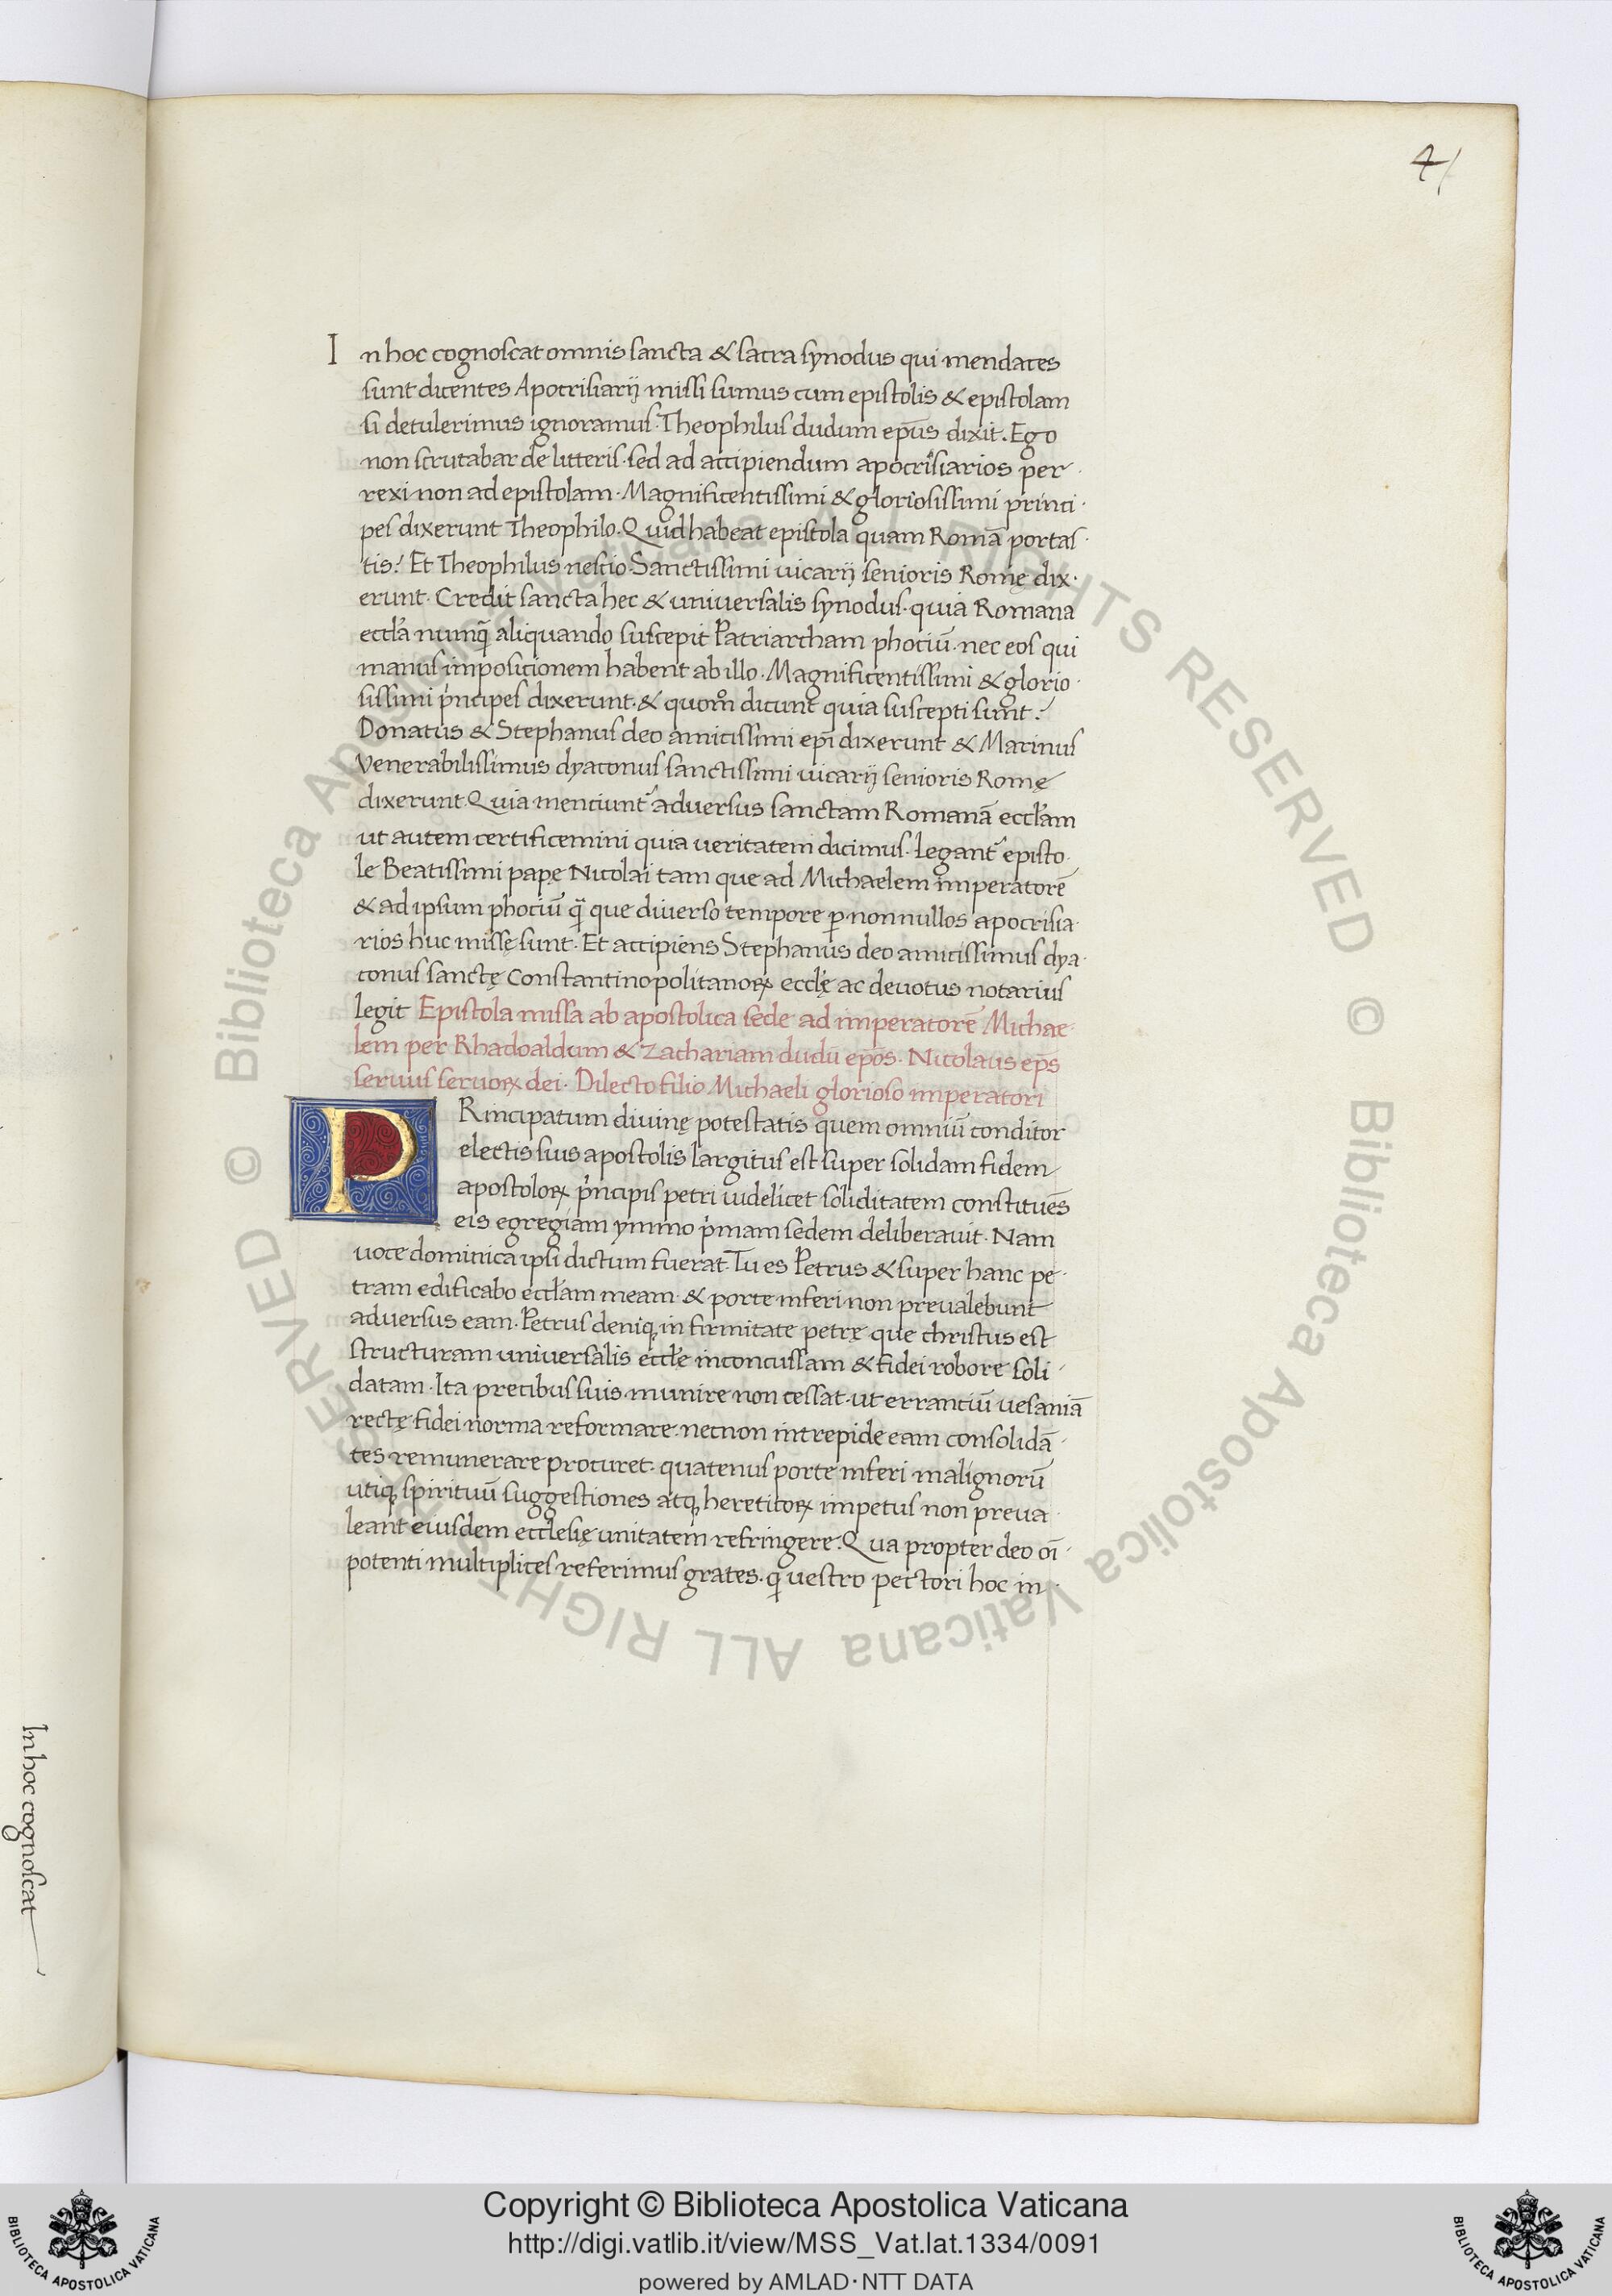 41
In hoc cognoscat omnis sancta & sacra synodus qui mendaces
sunt dicentes Apocrisiarij missi sumus cum epistolis & epistolam
si detulerimus ignoramus. Theophilus dudum ep̄us dixit. Ego
non scrutabar de litteris. sed ad accipiendum apocrisiarios per
rexi non ad epistolam. Magnificentissimi & gloriosissimi princi
pes dixerunt Theophilo. Quid habeat epistola quam Romā portas
tis? Et Theophilus nescio. Sanctissimi uicarij senioris Romę dix
erunt. Credit sancta hec & universalis synodus. quia Romana
eccła numq̄ aliquando suscepit Patriarcham phociū. nec eos qui
manus imposicionem habent ab illo. Magnificentissimi & glorio
sissimi pⁱncipes dixerunt. & quom̊ dicunt quia suscepti sunt?
Donatus & Stephanus deo amicissimi ep̄i dixerunt & Marinus
Venerabilissimus dyaconus sanctissimi uicarij senioris Romę
dixerunt. Quia menciunt᷑ adversus sanctam Romanā eccłam
ut autem certificemini quia veritatem dicimus. Legant᷑ episto
le Beatissimi papę Nicolai tam que ad Michaelem imperatorē
& ad ipsum phociū q̄ que diverso tempore ꝑ nonnullos apocrisia
rios huc missę sunt. Et accipiens Stephanus deo amicissimus dya
conus sanctę Constantinopolitanoꝝ ecclę ac devotus notarius
legit Epistola missa ab apostolica sede ad imperatorē Michae
lem per Rhadoaldum & Zachariam dudū ep̄os. Nicolaus ep̄s
servus servoꝝ dei. Dilecto filio Michaeli glorioso imperatori
PRincipatum divinę potestatis quem omniū conditor
electis suis apostolis largitus est super solidam fidem
apostoloꝝ pⁱncipis petri uidelicet soliditatem constituēs
eis egregiam ymmo pⁱmam sedem deliberavit. Nam
uoce dominica ipsi dictum fuerat. Tu es Petrus & super hanc pe
tram edificabo eccłam meam. & porte inferi non prevalebunt
adversus eam. Petrus deniqꝫ in firmitate petrę que christus est
structuram universalis eccłę inconcussam & fidei robore soli
datam. Ita precibus suis munire non cessat. ut erranciū uesaniā
rectę fidei norma reformare. necnon intrepide eam consolidā
tes remunerare procuret. quatenus porte inferi malignorū
utiqꝫ spirituū suggestiones atqꝫ hereticoꝝ impetus non preva
leant eiusdem ecclesię unitatem refringere. Qua propter deo oī
potenti multiplices referimus grates. q̄ vestro pectori hoc in
In hoc cognoscat
© Biblioteca Apostolica Vaticana ALL RIGHTS RESERVED
© Biblioteca Apostolica Vaticana ALL RIGHTS RESERVED
Copyright © Biblioteca Apostolica Vaticana
http://digi.vatlib.it/view/MSS_Vat.lat.1334/0091
powered by AMLAD·NTT DATA
BIBLIOTECA APOSTOLICA VATICANA
BIBLIOTECA APOSTOLICA VATICANA